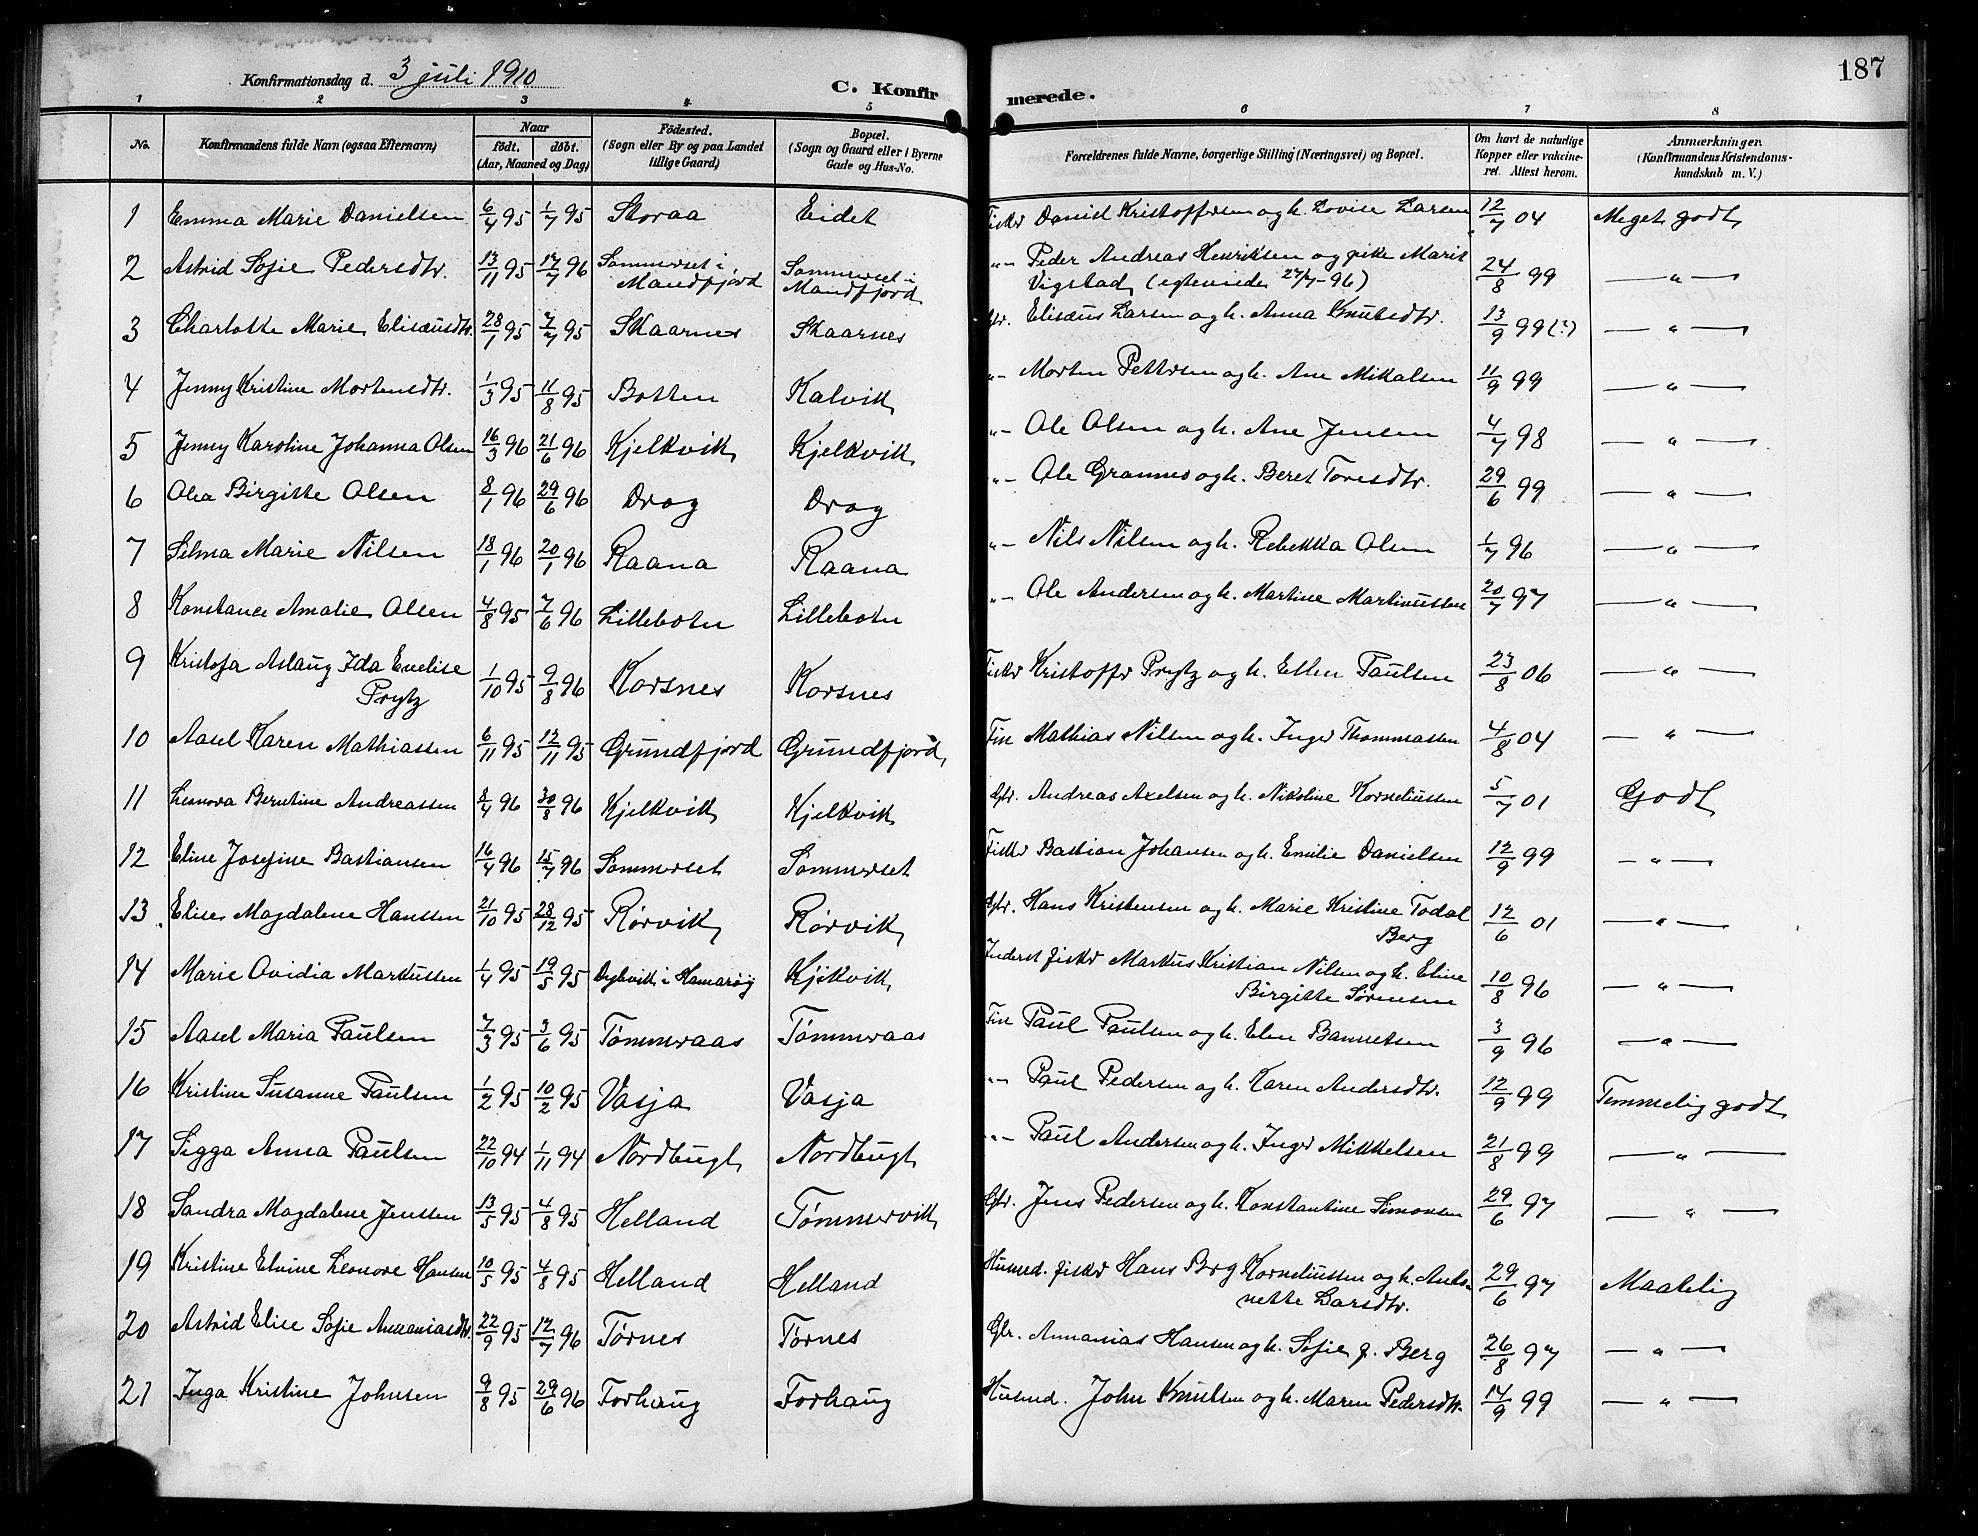 187
Konfirmationsdag d. 3 juli 1910
C. Konfirmerede.
1 2 3 4 5 6 7 8
No. Konfirmandens fulde Navn (ogsaa Efternavn) Naar født. døbt. (Aar, Maaned og Dag) Fødested. (Sogn eller By og paa Landet tillige Gaard) Bopæl. (Sogn og Gaard eller i Byerne Gade og Hus-No. Forældrenes fulde Navne, borgerlige Stilling (Næringsvei) og Bopæl. Om havt de naturlige Kopper eller vakcineret. Attest herom. Anmærkninger. (Konfirmandens Kristendomskundskab m. V.)
1 Emma Marie Danielsen 6/4 95 1/7 95 Storaa Eidet Fisker Daniel Kristoffersen og h. Lovise Larsen 12/7 04 Meget godt
2 Astrid Sofie Pedersdtr. 13/11 95 17/7 96 Sommerset i Mandfjord Sommerset i Mandfjord "- Peder Andreas Henriksen og pike Marit
Vigstad (egteviede 27/7-96) 24/8 99 — " —
3 Charlotte Marie Elisæusdtr. 28/1 95 7/7 95 Skaarnes Skaarnes Gbr. Elisæus Larsen og h. Anna Knutsdtr. 13/9 99 (?) — " —
4 Jenny Kristine Mortensdtr. 1/3 95 11/8 95 Botten Kalvik "- Morten Pettersen og h. Ane Mikalsen 11/9 99 — " —
5 Jenny Karoline Johanna Olsen 16/3 96 21/6 96 Kjelkvik Kjelkvik "- Ole Olsen og h. Ane Jensen 4/7 98 — " —
6 Olea Birgitte Olsen 8/1 96 29/6 96 Drag Drag "- Ole Grannes og h. Beret Toresdtr. 29/6 99 — " —
7 Selma Marie Nilsen 18/1 96 20/1 96 Raana Raana "- Nils Nilsen og h. Rebekka Olsen 1/7 96 — " —
8 Konstance Amalie Olsen 4/8 95 7/6 96 Lillebotn Lillebotn "- Ole Andersen og h. Martine Martinussen 20/7 97 — " —
9 Kristofa Aslaug Ida Enelise
Prytz 1/10 95 9/8 96 Korsnes Korsnes Fisker Kristoffer Prytz og h. Ellen Paulsen 23/8 06 — " —
10 Aasel Karen Mathiassen 6/11 95 12/11 95 Grundfjord Grundfjord Fin Mathias Nilsen og h. Inger Thommassen 4/8 04 — " —
11 Leonora Berntine Andreassen 8/4 96 30/8 96 Kjelkvik Kjelkvik Gbr. Andreas Axelsen og h. Nikoline Korneliussen 5/7 01 Godt
12 Eline Josefine Bastiansen 16/4 96 15/7 96 Sommerset Sommerset Fisker Bastian Johansen og h. Emilie Danielsen 12/9 99 — " —
13 Elise Magdalene Hanssen 21/10 95 28/12 95 Rørvik Rørvik Gbr. Hans Kristensen og h. Marie Kristine Todal
Berg 12/6 01 — " —
14 Marie Ovidia Markussen 1/4 95 19/5 95 i Hamarøy Kjelkvik Inderst fisker Markus Kristian Nilsen og h. Eline
Birgitte Sørensen 10/8 96 — " —
15 Aasel Maria Paulsen 7/3 95 3/6 95 Tømmeraas Tømmeraas Fin Paul Paulsen og h. Elen 3/9 96 — " —
16 Kristine Susanne Paulsen 1/2 95 10/2 95 Vasja Vasja "- Paul Pedersen og h. Karen Andersdtr. 12/9 99 Temmelig godt
17 Sigga Anna Paulsen 22/10 94 1/11 94 Nordbugt Nordbugt "- Paul Andersen og h. Inger Mikkelsen 21/8 99 — " —
18 Sandra Magdalene Jenssen 13/5 95 4/8 95 Helland Tømmervik Gbr. Jens Pedersen og h. Konstantine Simonsen 29/6 97 — " —
19 Kristine Elvine Leonore Hansen 10/5 95 4/8 95 Helland Helland Husmd. fisker Hans Berg Korneliussen og h. Antonette
Larsdtr. 29/6 97 Maadelig
20 Astrid Elise Sofie Annaniasdtr. 22/9 95 12/7 96 Tørnes Tørnes Gbr. Annanias Hansen og h. Sofie f. Berg 26/8 97 — " —
21 Inga Kristine Johnsen 9/8 95 29/6 96 Forhaug Forhaug Husmd. John Knutsen og h. Maren Pedersdtr. 14/9 99 — " —